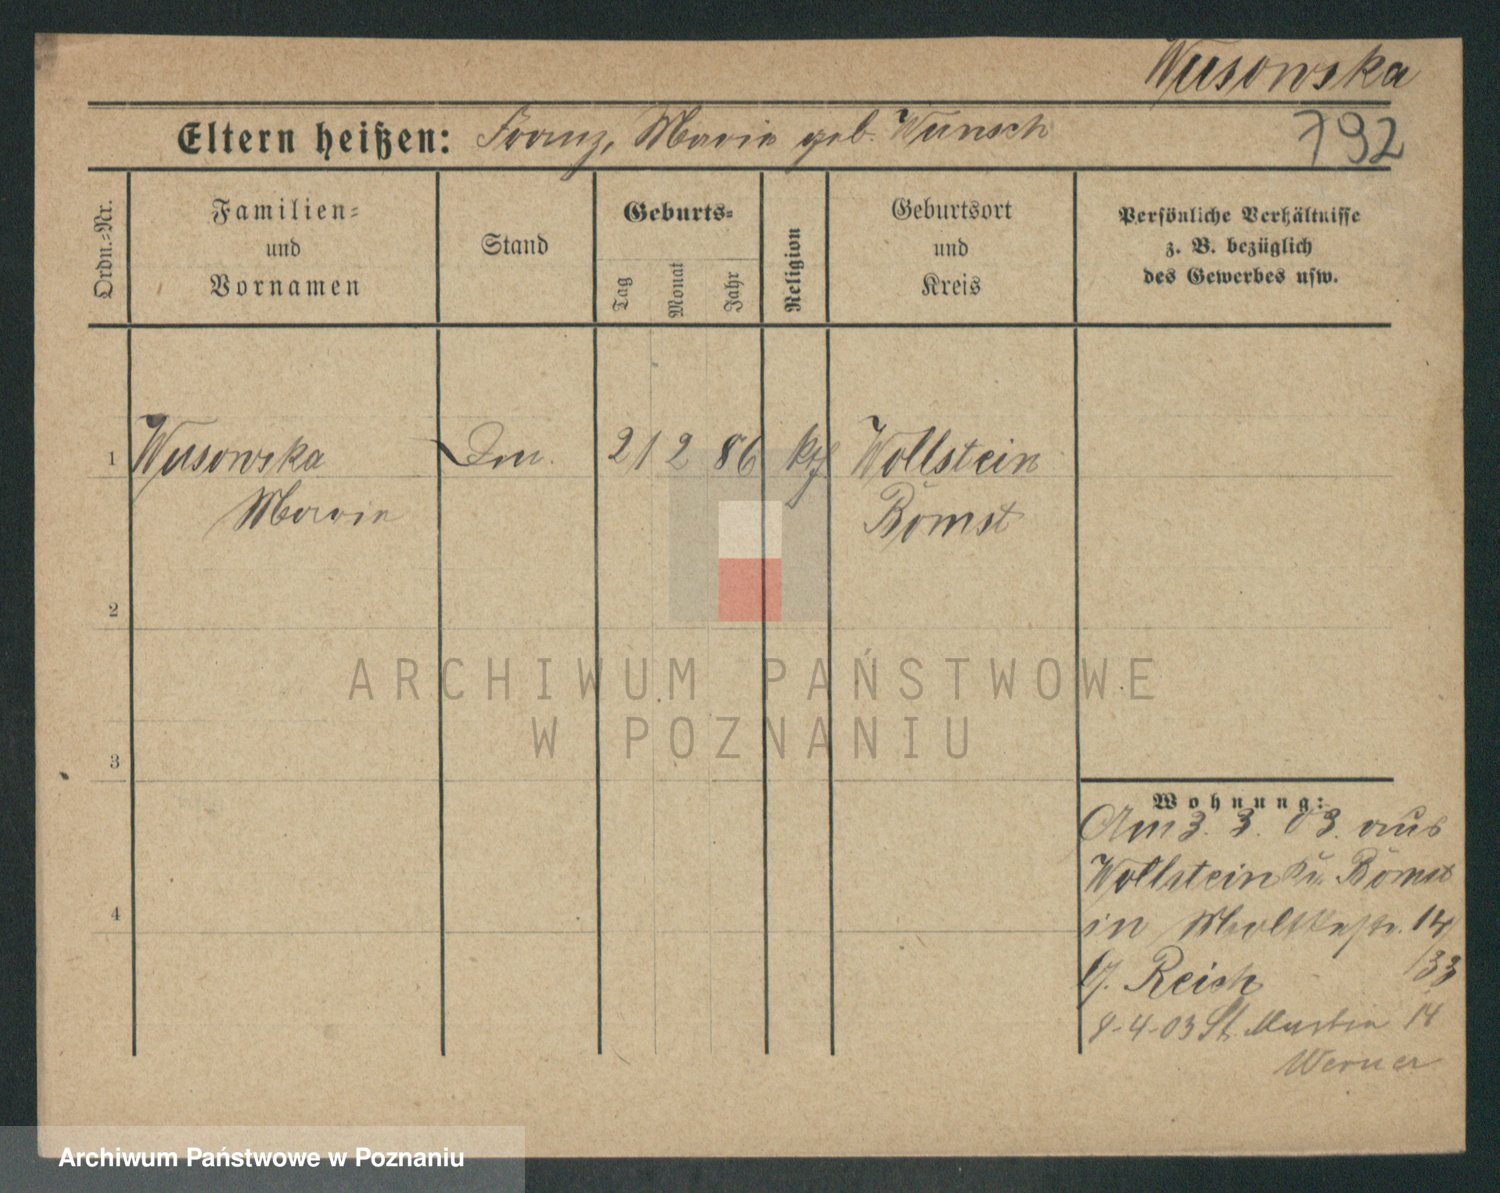 Wusowska
Eltern heißen: Franz, Marie geb. Wunsch
792
Ordn.-Nr.
Familien-
und
Vornamen
Stand
Geburts-
Tag
Monat
Jahr
Religion
Geburtsort
und
Kreis
Persönliche Verhältnisse
z. B. bezüglich
des Gewerbes usw.
1 Wusowska 21 2 86 Wollstein
Marie Bomst
2
3
4
Wohnung:
Am 3. 3. 03. aus
Wollstein Kr. Bomst
in Moltkestr. 14
Reich 133
8-4-03 St Martin 14
Werner
ARCHIWUM PAŃSTWOWE
W POZNANIU
Archiwum Państwowe w Poznaniu